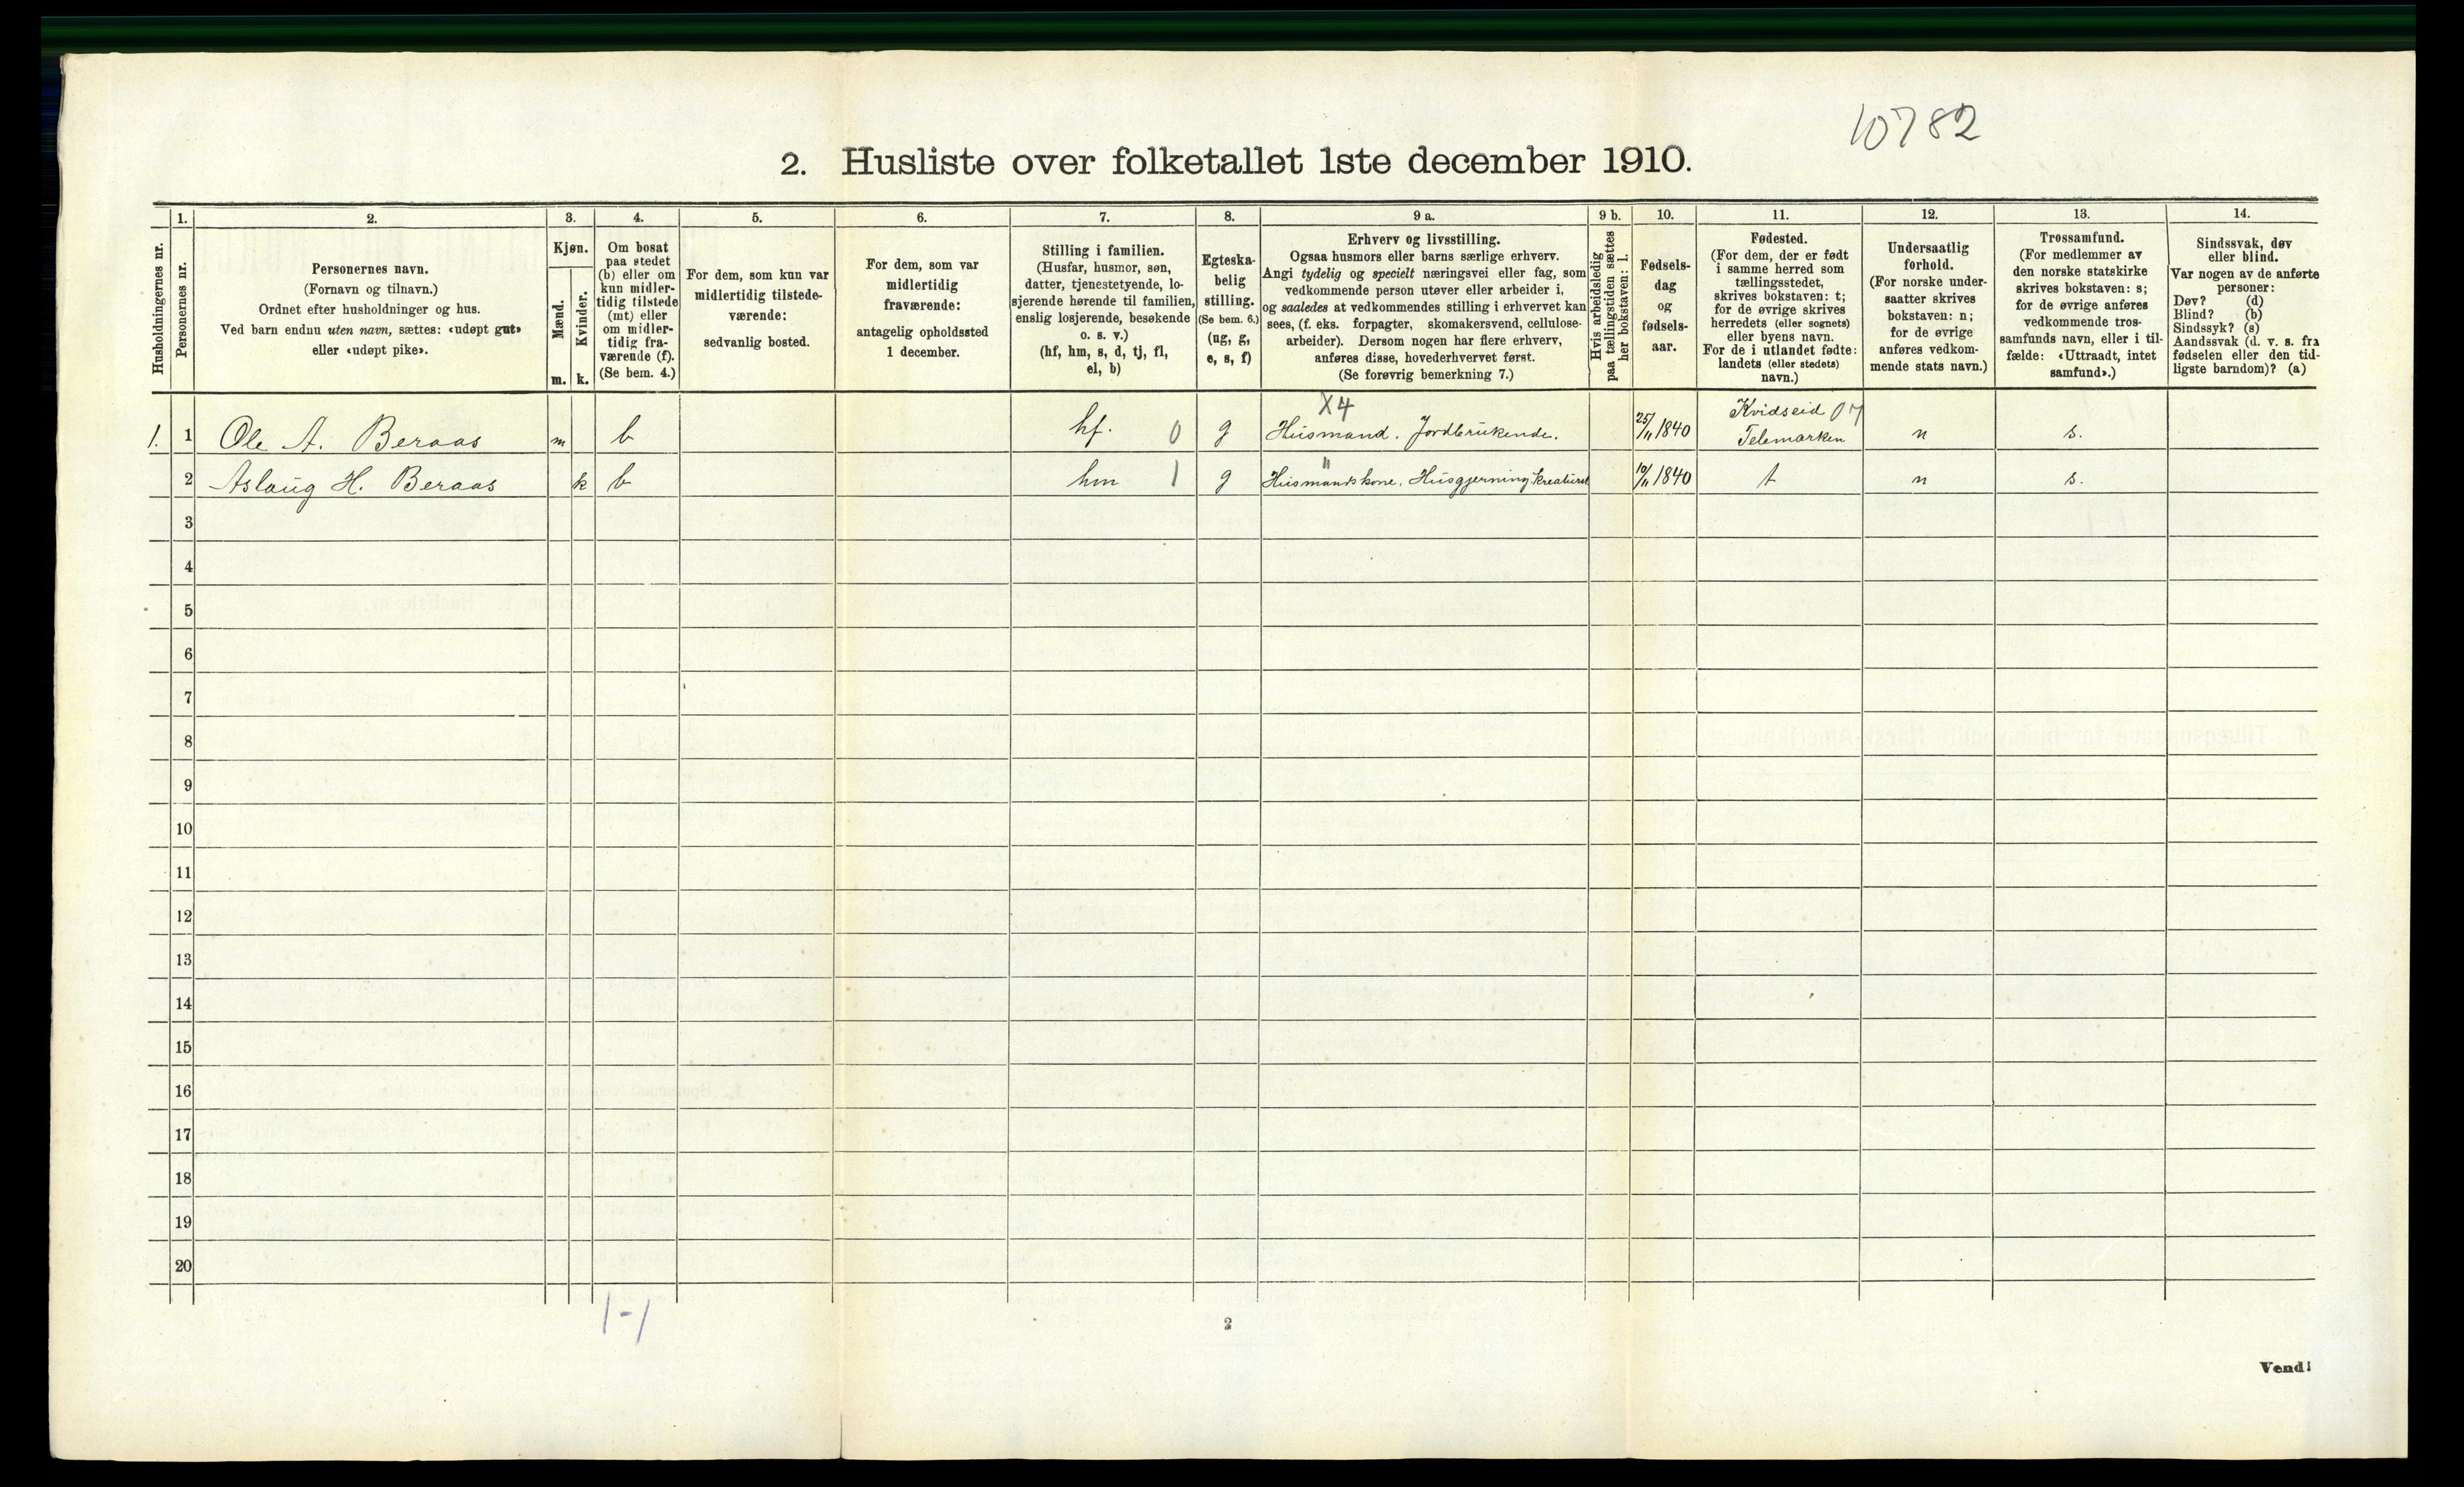 10782
2. Husliste over folketallet 1ste december 1910.
Husholdningernes nr.
1.
Personernes nr.
2.
Personernes navn.
(Fornavn og tilnavn.)
Ordnet efter husholdninger og hus.
Ved barn endnu uten navn, sættes: «udøpt gut»
eller «udøpt pike».
3.
Kjøn.
Mænd.
Kvinder.
m. k.
4.
Om bosat
paa stedet
(b) eller om
kun midler-
tidig tilstede
(mt) eller
om midler-
tidig fra-
værende (f).
(Se bem. 4.)
5.
For dem, som kun var
midlertidig tilstede-
værende:
sedvanlig bosted.
6.
For dem, som var
midlertidig
fraværende:
antagelig opholdssted
1 december.
7.
Stilling i familien.
(Husfar, husmor, søn,
datter, tjenestetyende, lo-
sjerende hørende til familien,
enslig losjerende, besøkende
o. s. v.)
(hf, hm, s, d, tj, fl,
el, b)
8.
Egteska-
belig
stilling.
(Se bem. 6.)
(ug, g,
e, s, f)
9 a.
Erhverv og livsstilling.
Ogsaa husmors eller barns særlige erhverv.
Angi tydelig og specielt næringsvei eller fag, som
vedkommende person utøver eller arbeider i,
og saaledes at vedkommendes stilling i erhvervet kan
sees, (f. eks. forpagter, skomakersvend, cellulose-
arbeider). Dersom nogen har flere erhverv,
anføres disse, hovederhvervet først.
(Se forøvrig bemerkning 7.)
9 b.
Hvis arbeidsledig
paa tællingstiden sættes
her bokstaven: l.
10.
Fødsels-
dag
og
fødsels-
aar.
11.
Fødested.
(For dem, der er født
i samme herred som
tællingsstedet,
skrives bokstaven: t;
for de øvrige skrives
herredets (eller sognets)
eller byens navn.
For de i utlandet fødte:
landets (eller stedets)
navn.)
12.
Undersaatlig
forhold.
(For norske under-
saatter skrives
bokstaven: n;
for de øvrige
anføres vedkom-
mende stats navn.)
13.
Trossamfund.
(For medlemmer av
den norske statskirke
skrives bokstaven: s;
for de øvrige anføres
vedkommende tros-
samfunds navn, eller i til-
fælde: «Uttraadt, intet
samfund».)
14.
Sindssvak, døv
eller blind.
Var nogen av de anførte
personer:
Døv? (d)
Blind? (b)
Sindssyk? (s)
Aandssvak (d. v. s. fra
fødselen eller den tid-
ligste barndom)? (a)
X4
Kvidseid 07
1. 1 Ole A. Beraas m b hf. 0 g Husmand. Jordbrukende. 25/11 1840 Telemarken n s.
"
2 Aslaug H. Beraas k b hm 1 g Husmandskone. Husgjerning kreaturst 10/11 1840 t n s.
3
4
5
6
7
8
9
10
11
12
13
14
15
16
17
18
19
20
1-1
2
Vend!